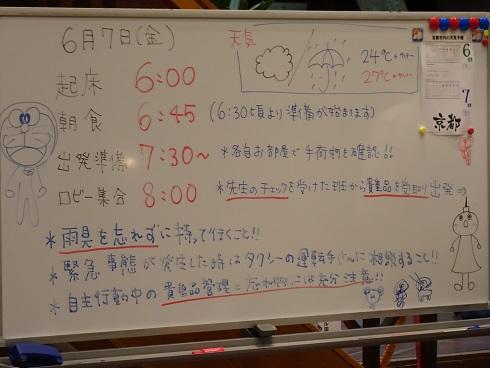 6月7日(金)
天気
24℃
27℃
起床 6:00
朝食 6:45 (6:30頃より準備が始まります)
出発準備 7:30~ *各自お部屋で手荷物を確認!!
ロビー集合 8:00 *先生のチェックを受けた班から貴重品を受取り出発⇒
*雨具を忘れずに持って行くこと!!
*緊急事態が発生した時はタクシーの運転手さんに相談すること!!
*自主行動中の貴重品管理と忘れ物には充分注意!!
6
7
京都